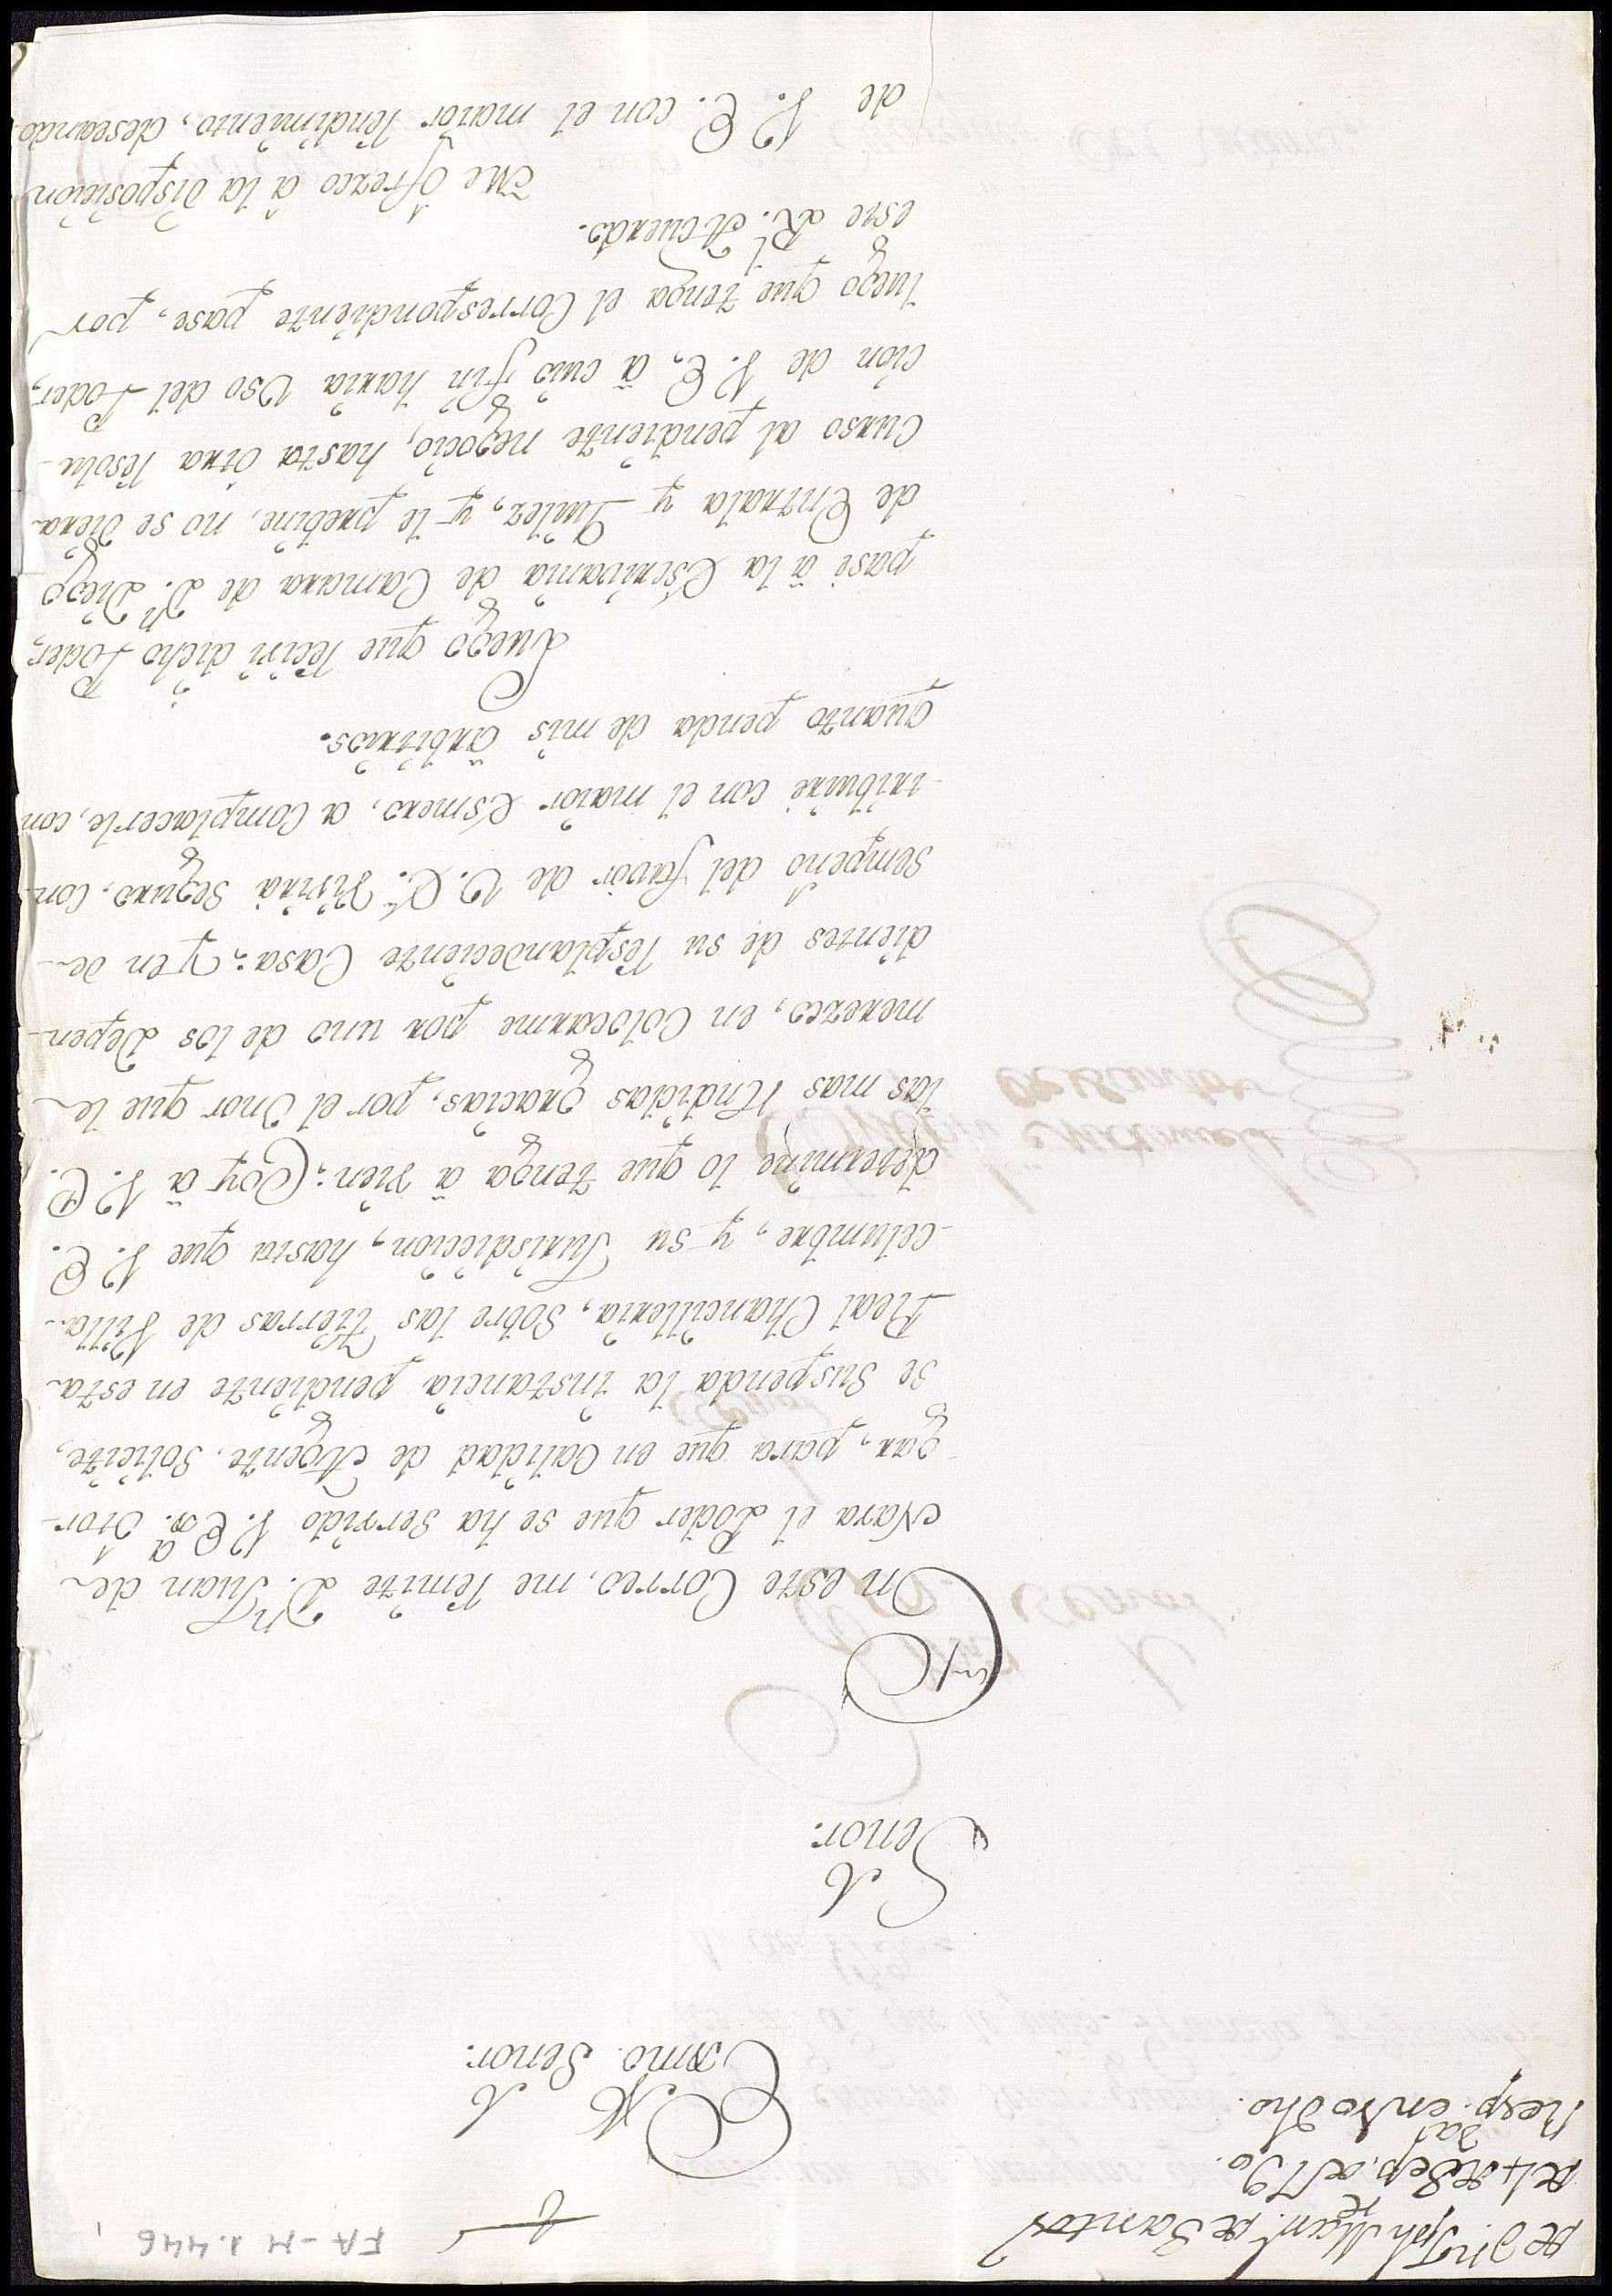 de D.n Jph Man.l de Santos
de 4 de Sep.e de 790.
Resp.da en 8 dho.
FA-M 1.446
Exmo. Señor.
Señor.
En este Correo, me remite D.n Juan de
Nava el Poder que se ha Servido V. Ex.a Otor-
gar, para que en calidad de Agente, Solicite,
se Suspenda la instancia pendiente en esta
Real Chancilleria, Sobre las tierras de Villa-
celumbre, y su Jurisdiccion, hasta que V. E.
determine lo que tenga â vien: Doy â V. E.
las mas rendidas gracias, por el onor que le
merezco, en Colocarme por uno de los Depen-
dientes de su resplandeciente Casa: Y en de-
sempeño del favor de V. E.a vivirá Seguro, con-
tribuiré con el maior Esmero, a Complacerle, con
quanto penda de mis ârbitrios.
Luego que reciví dicho Poder,
pasé â la Escrivanía de Camara de D.n Diego
de Entrala y Quilez, y le prebine, no se diera
Curso al pendiente negocio, hasta ótra resolu-
cion de V. E, â cuio fin haria Uso del Poder,
luego que tenga el Correspondiente pase, por
este R.l Acuerdo.
Me Ofrezco â la Disposicion
de V. E. con el maior rendimiento, deseando